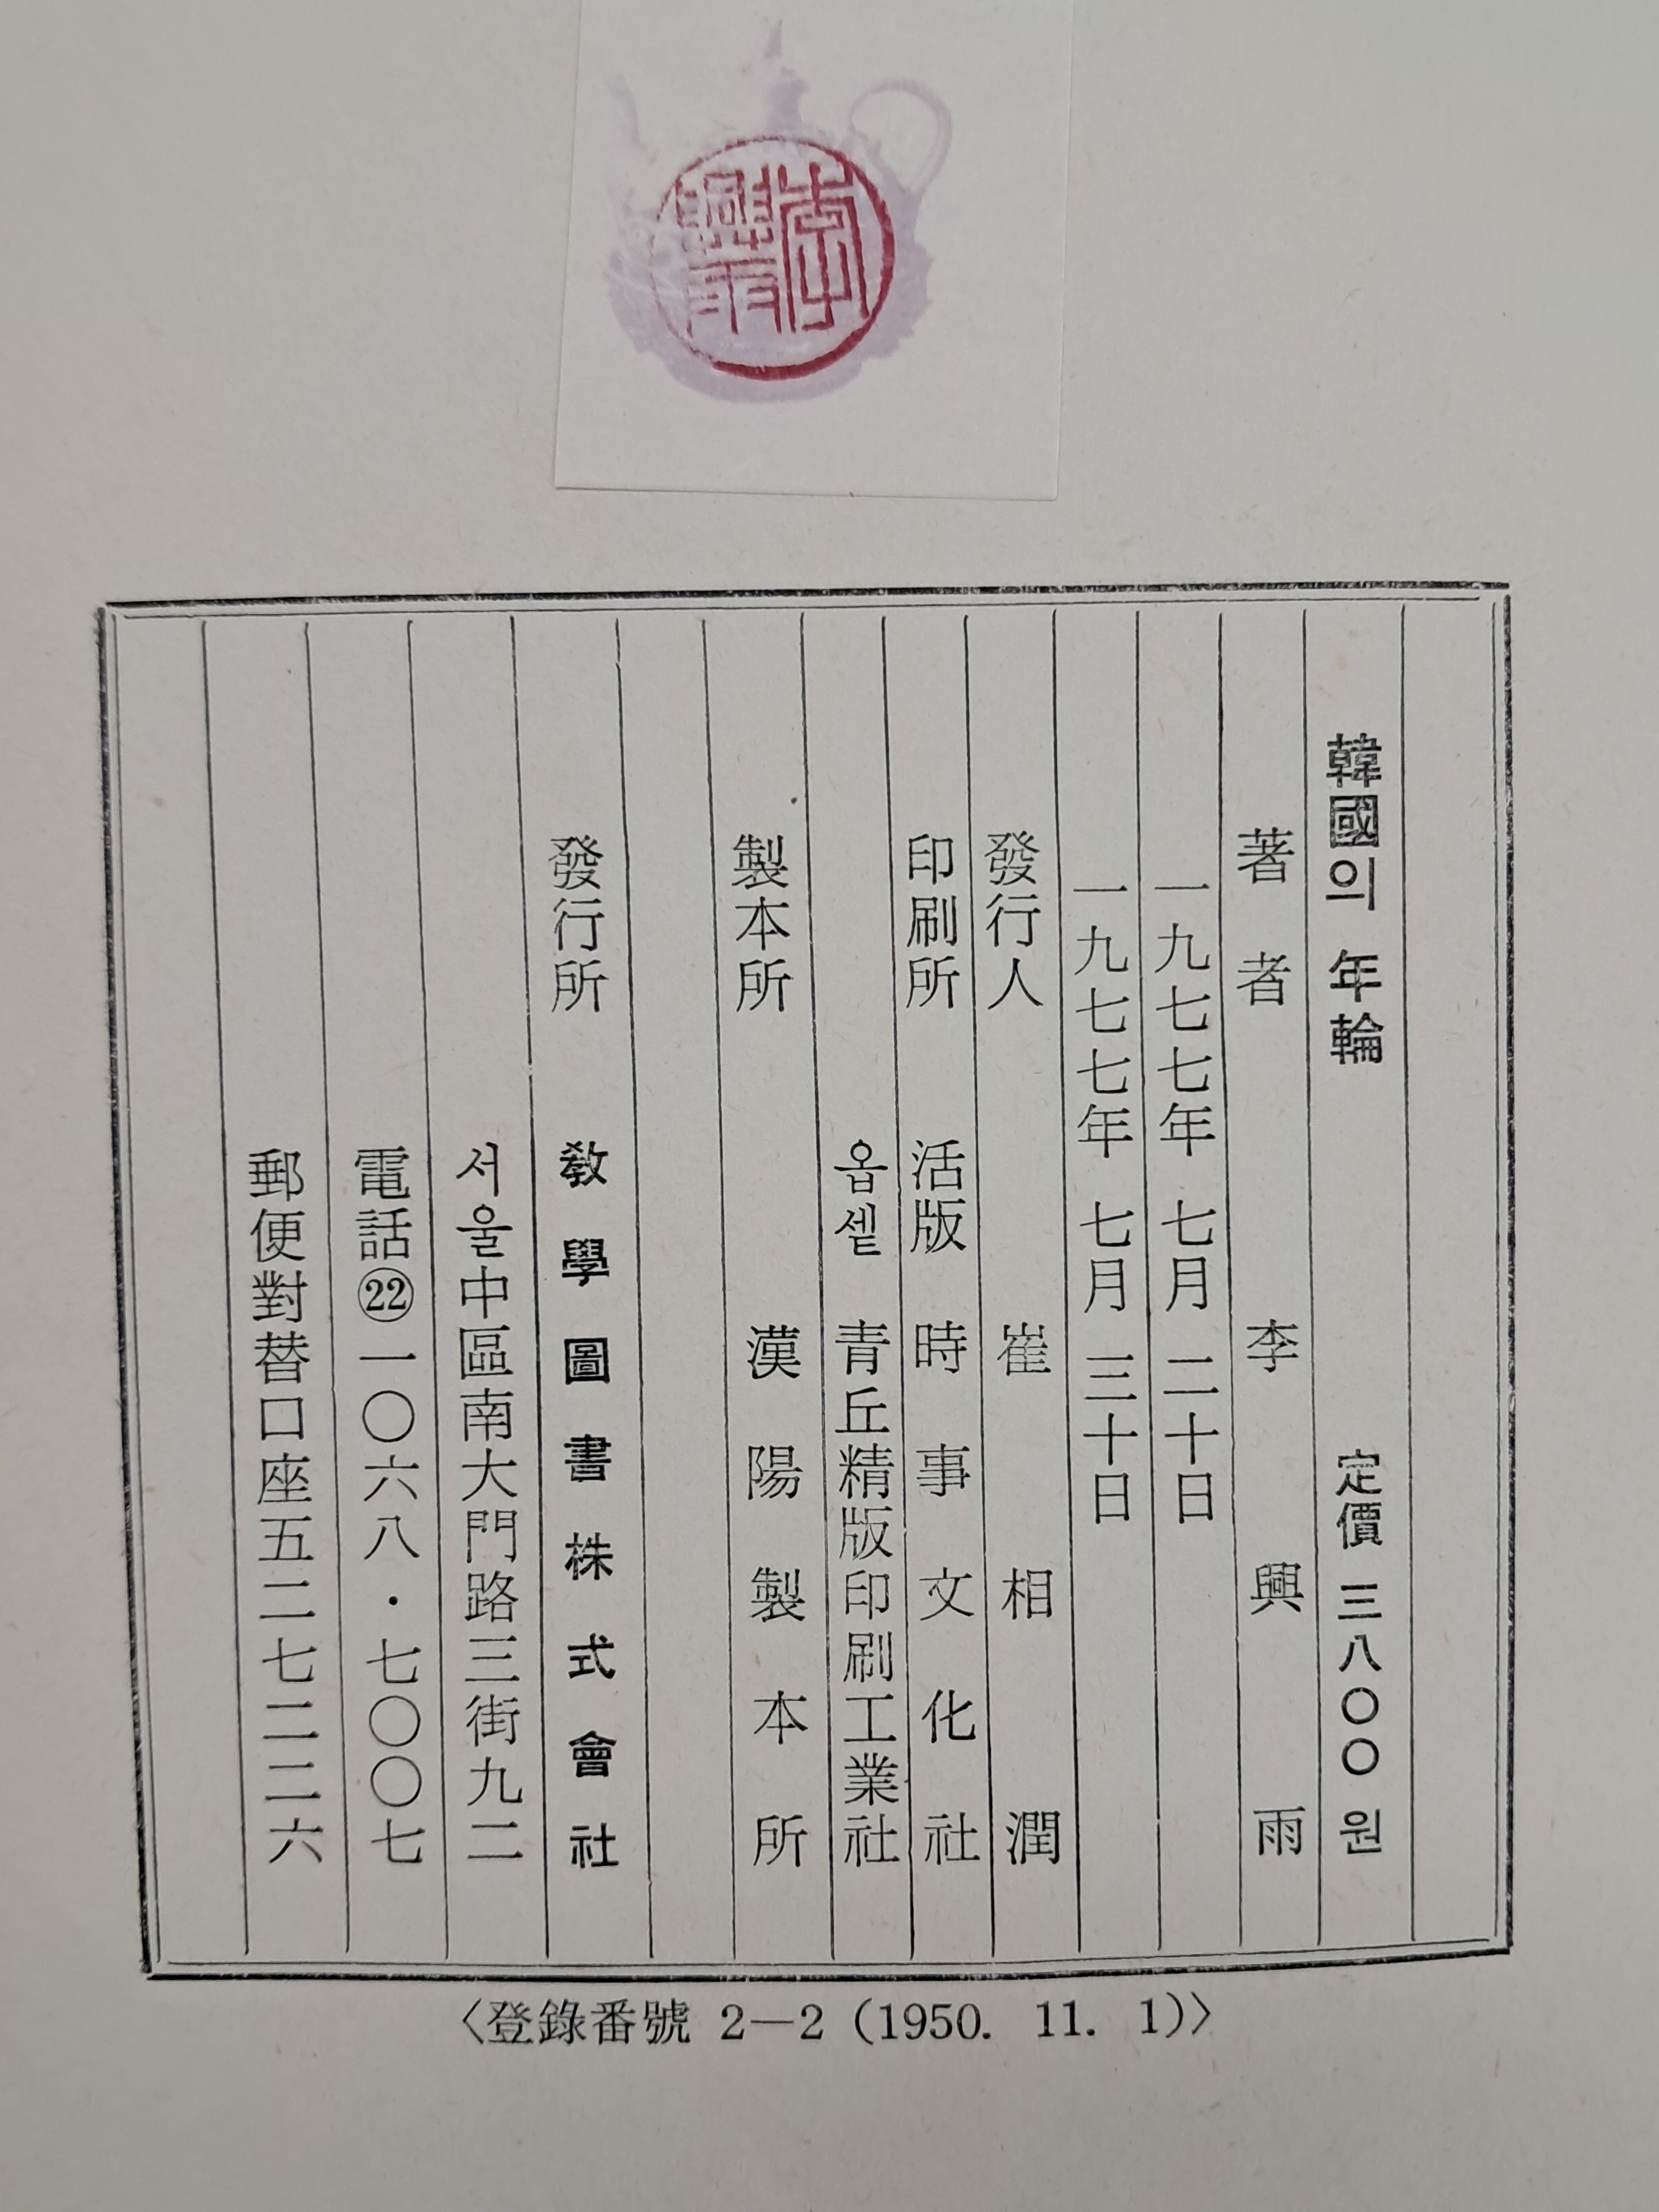 李興雨
韓國의 年輪 定價 三八〇〇 원
著者 李興雨
一九七七年 七月 二十日
一九七七年 七月 三十日
發行人 崔相潤
印刷所 活版 時事文化社
옵셑 青丘精版印刷工業社
製本所 漢陽製本所
發行所 敎學圖書株式會社
서울中區南大門路三街九二
電話㉒一〇六八·七〇〇七
郵便對替口座五二七二二六
〈登錄番號 2—2 (1950. 11. 1)〉